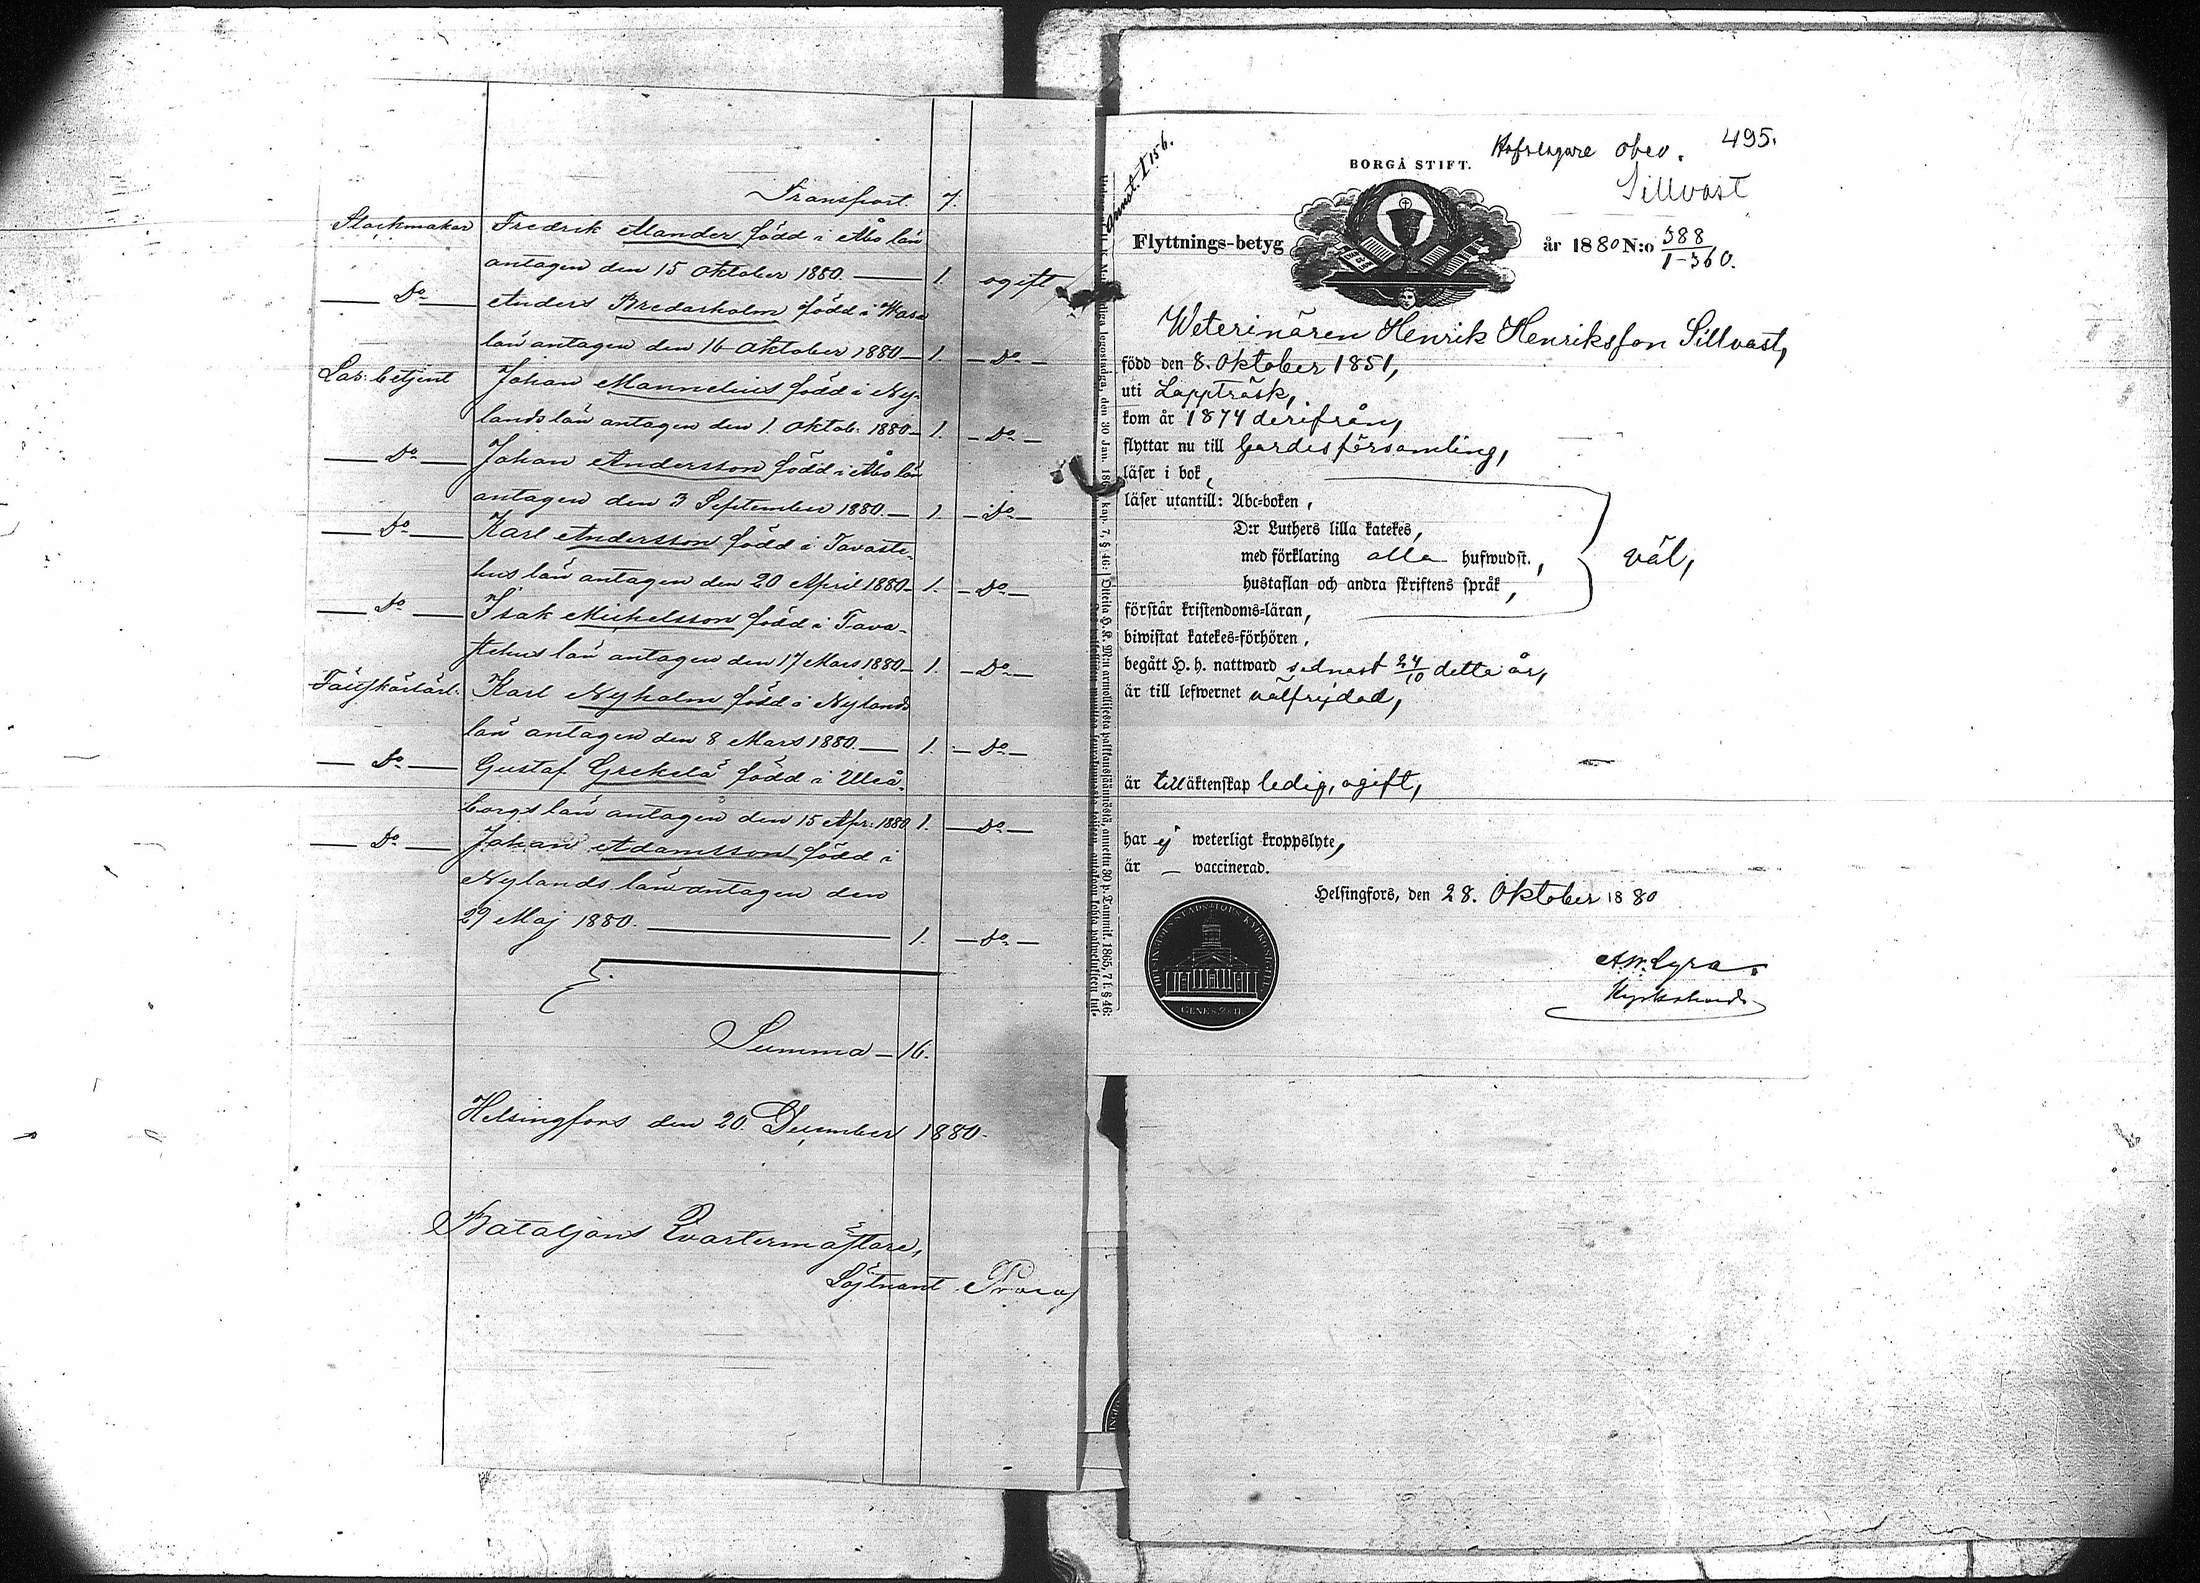 Transport. 7.
Stockmakar Fredrik Alander född i Åbo län
antagen den 15 Oktober 1880. 1. ogift
Do Anders Bredarholm född i Wasa
län antagen den 16 Oktober 1880 1. Do
Laz. betjent Johan Mannelius född i Ny-
lands län antagen den 1 Oktob: 1880 1. Do
Do Johan Andersson född i Åbo län
antagen den 3 September 1880. 1. Do
Do Karl Andersson född i Tavaste-
hus län antagen den 20 April 1880 1. Do
Do Isak Michelsson född i Tava-
stehus län antagen den 17 Mars 1880 1. Do
Karl Nyholm född i Nylands
län antagen den 8 Mars 1880. 1. Do
Do Gustaf Grekelä född i Uleå-
borgs län antagen den 15 Apr: 1880 1. Do
Do Johan Adamsson född i
Nylands län antagen den
29 Maj 1880. 1. Do
Summa 16.
Helsingfors den 20 December 1880.
Bataljons Qvartermästare,
Löjtnant
Annot. I 156.
Hofslagare obev. 495.
Sillvast
BORGÅ STIFT.
Flyttnings-betyg år 1880 N:o 588
1-360.
Weterinären Henrik Henriksson Sillvast,
född den 8. Oktober 1851,
uti Lappträsk,
kom år 1874 derifrån,
flyttar nu till Gardesförsamling,
läser i bok,
läser utantill: Abc-boken,
D:r Luthers lilla katekes,
med förklaring alla hufwudst.,
hustaflan och andra skriftens språk,
väl,
förstår kristendoms-läran,
biwistat katekes-förhören,
begått H. h. nattward sednast 24/10 detta år,
är till lefwernet välfrejdad,
är till äktenskap ledig, ogift,
har ej weterligt kroppslyte,
är — vaccinerad.
Helsingfors, den 28. Oktober 1880
A.W. Lyra.
GENES. 28:17.